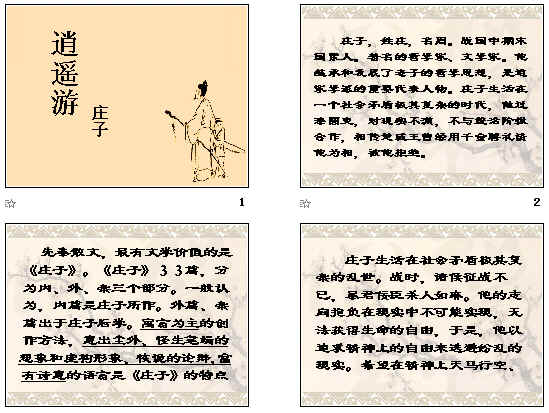 逍遥游
庄子
1
庄子，姓庄，名周。战国中期宋
国蒙人。著名的哲学家、文学家。他
继承和发展了老子的哲学思想，是道
家学派的重要代表人物。庄子生活在
一个社会矛盾极其复杂的时代，做过
漆园吏，对现实不满，不与统治阶级
合作，相传楚威王曾经用千金聘礼请
他为相，被他拒绝。
2
先秦散文，最有文学价值的是
《庄子》。《庄子》３３篇，分
为内、外、杂三个部分。一般认
为，内篇是庄子所作。外篇、杂
篇出于庄子后学。寓言为主的创
作方法，意出尘外、怪生笔端的
想象和虚构形象、恢诡的论辩，富
有诗意的语言是《庄子》的特点
庄子生活在社会矛盾极其复
杂的乱世。战时，诸侯征战不
已，暴君佞臣杀人如麻。他的志
向抱负在现实中不可能实现，无
法获得生命的自由，于是，他以
追求精神上的自由来逃避纷乱的
现实。希望在精神上天马行空、